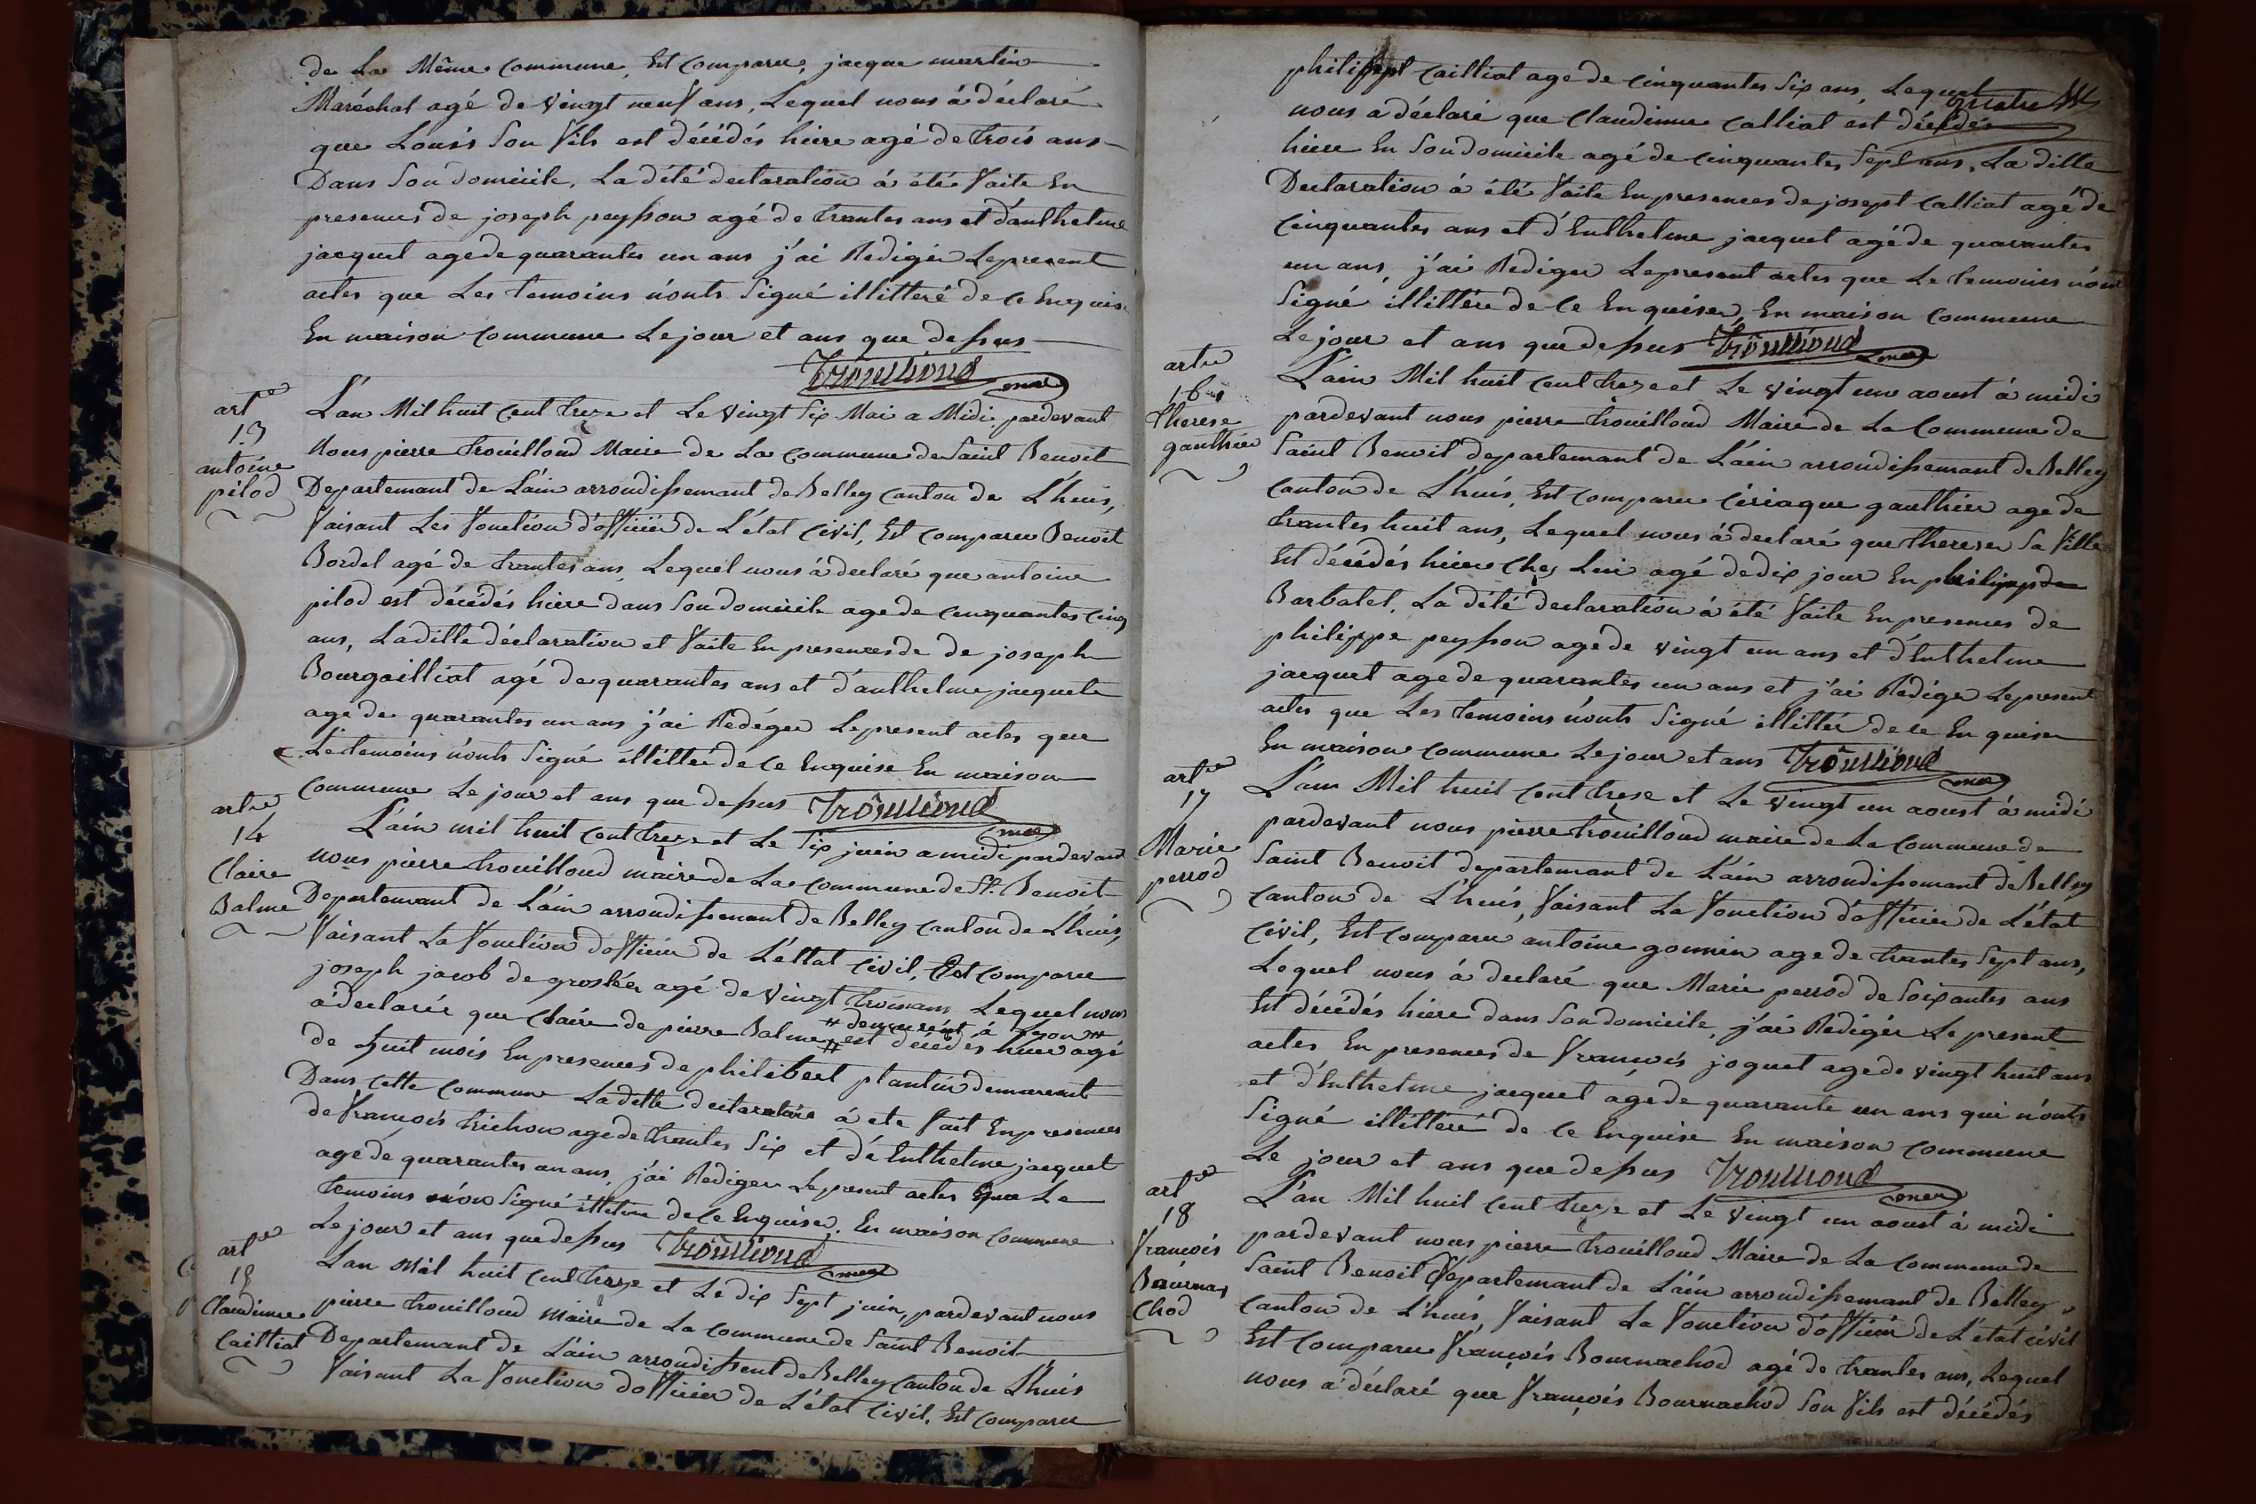 de La Même Commune, Est Comparu, jacque martin
Maréchal agé de vingt neuf ans, Lequel nous á déclaré
que Louis Son fils est décédés hiere agé de trois ans
Dans Son domicile, La dité declaration á été faite En
presences de joseph peysson agé de trantes ans et danthelme
jacquet agé de quarantes un ans j'ai Redigér Le present
actes que Les temoins n'onts Signé illitteré de ce Enquis
En maison Commune Le jour et ans que dessus
Trouilloud maire
art.e
13
antoine
pilod
L'an Mil huit Cent treze et Le vingt Six Mai a Midi pardevant
Nous pierre trouilloud Maire de La Commune de Saint Benoit
Departemant de L'ain arrondissemant de Belley Canton de Lhuis,
faisant Les fonction d'officier de L'état Civil, Est Comparu Benoit
Bordel agé de trantes ans Lequel nous á declaré que antoine
pilod est décédés hiere dans Son domicile age de cinquantes cinq
ans, La ditte déclaration et faite En presences de de joseph
Bourgailliat agé de quarantes ans et d'anthelme jacquete
age de quarantes un ans j'ai Redéger Le present actes que
Le temoins n'onts Signé illitteé de Ce Enquise En maison
Commune Le jour et ans que dessus Trouilloud maire
arte
14
Claire
Balme
L'ain mil huit Cent treze et Le Six juin a midi pardevant
nous pierre trouilloud maire de La Commune de St. Benoit
Departemant de L'ain arrondissemant de Belley Canton de Lhuis,
faisant La fonction d'officier de L'éttat Civil, Est Comparu
joseph jacob de groslée agé de vingt trois ans Lequel nous
á declarér que Claire de pierre Balme # est décédés hiere agé
# demeurént á Lyon #
de huit mois En presences de philibert plantin demarent
Dans Cette Commune La ditte declaration á ete fait En presences
de françois trichon age de trantes Six et dé Enthelme jacquet
agé de quarantes un ans, j'ai Rediger Le present actes que Le
temoins n'on Signé illetere de Ce Enquise. En maison Commune
Le jour et ans que dessus Trouilloud maire
arte
18
Claudinne
Cailliat
L'an Mil huit Cent treze et Le dix Sept juin, pardevant nous
pierre trouilloud Maire de La Commune de Saint Benoit
Departemant de L'ain arrondissent de Belley Canton de Lhuis
faisant La fonction d'officier de L'état Civil, Est Comparu
quatre
philippt Cailliat age de Cinquantes Six ans, Lequel
nous a déclaré que Claudinne Calliat est décédés
hiere En Son domicile agé de Cinquantes Sept ans, La ditte
Declaration á été faite En presences de josept Calliat agé de
Cinquantes ans et d'Enthelme jacquet agé de quarantes
un ans, j'ai Rediger Le present actes que Le temoins n'ont
Signé illittére de Ce Enquiser, En maison Commune
Le jour et ans que dessus Trouilloud maire
arte
16
therese
gauthier
L'ain Mil huit Cent treze et Le vingt un aoust á midi
pardevant nous pierre trouilloud Maire de La Commune de
Saint Benoit departemant de L'ain arrondissemant de Belley
Canton de L'huis, Est Comparu Ciriaque gauthier age de
trantes huit ans, Lequel nous á declaré que therese Sa fille
Est décédés hiere Chez Lui agé de dix jour En
Barbalet. La dité declaration á été faite En presences de
philippe peysson age de vingt un ans et d'Enthelme
jacquet age de quarantes un ans et j'ai Rédiger Le present
actes que Les temoins n'onts Signé illittér de Ce Enquiser
En maison Commune Le jour et ans Trouilloud maire
arte
17
Marie
perrod
L'an Mil huit Cent treze et Le vingt un aoust á midi
pardevant nous pierre trouilloud maire de La Commune de
Saint Benoit departemant de L'ain arrondissemant de Belley
Canton de L'huis, faisant La fonction d'officier de L'état
Civil, Est Comparu antoine gonnin age de trantes Sept ans,
Lequel nous á declaré que Marie perrod de Soixantes ans
Est décédés hiere dans Son domicile, j'ai Redigér Le present
actes En presences de françois joguet age de vingt huit ans
et d'Enthelme jacquet age de quarante un ans qui n'onts
Signé illitteré de Ce Enquise En maison Commune
Le jour et ans que dessus Trouilloud maire
arte
18
françois
Bournas
Chod
L'an Mil huit Cent treze et Le vingt un aoust á midi
pardevant nous pierre trouilloud Maire de La Commune de
Saint Benoit Departemant de L'ain arrondissemant de Belley
Canton de L'huis, faisant La fonction d'officier de L'état Civil
Est Comparu françois Bournachod agé de trantes ans, Lequel
nous a déclaré que françois Bournachod Son fils est décédés